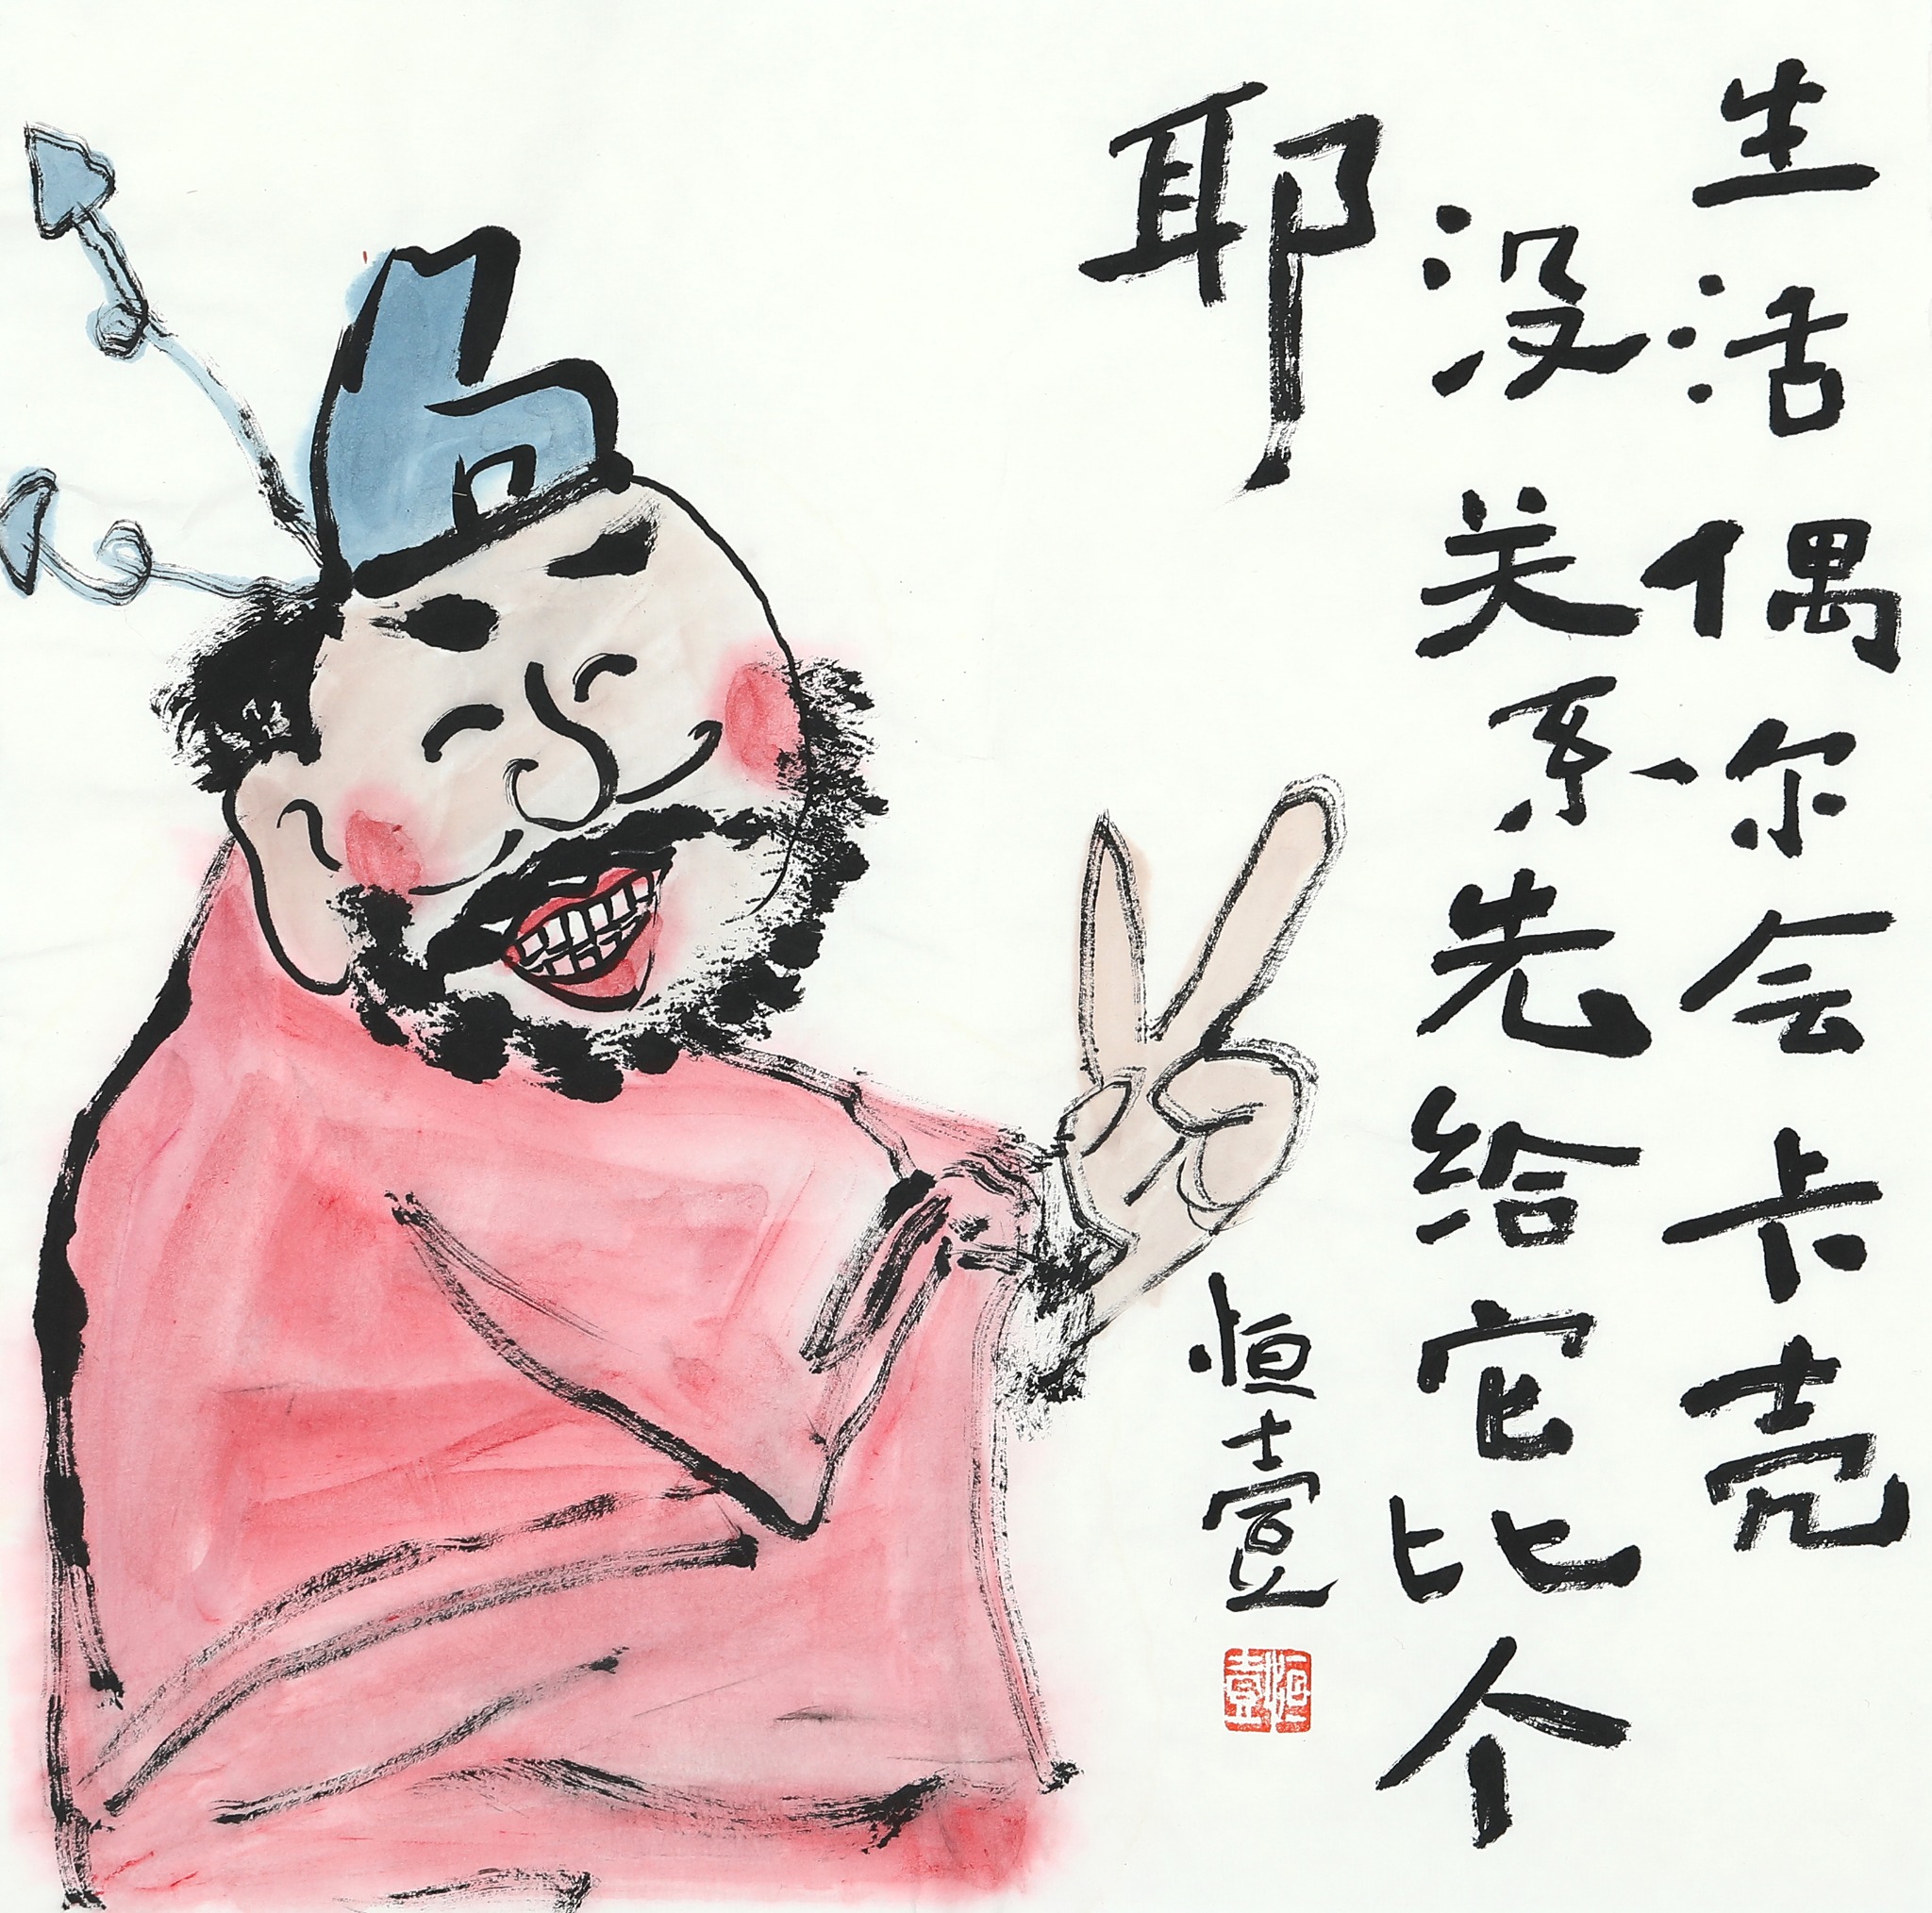 生活偶尔会卡壳
没关系先给它比个
耶
恒壹
恒壹